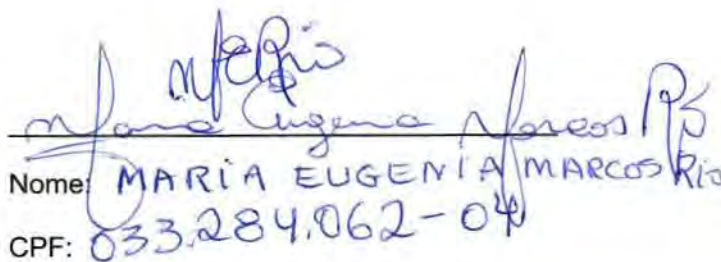 MERio
Maria Eugenia Marcos Rio
Nome: MARIA EUGENIA MARCOS RIO
CPF: 033.284.062-04